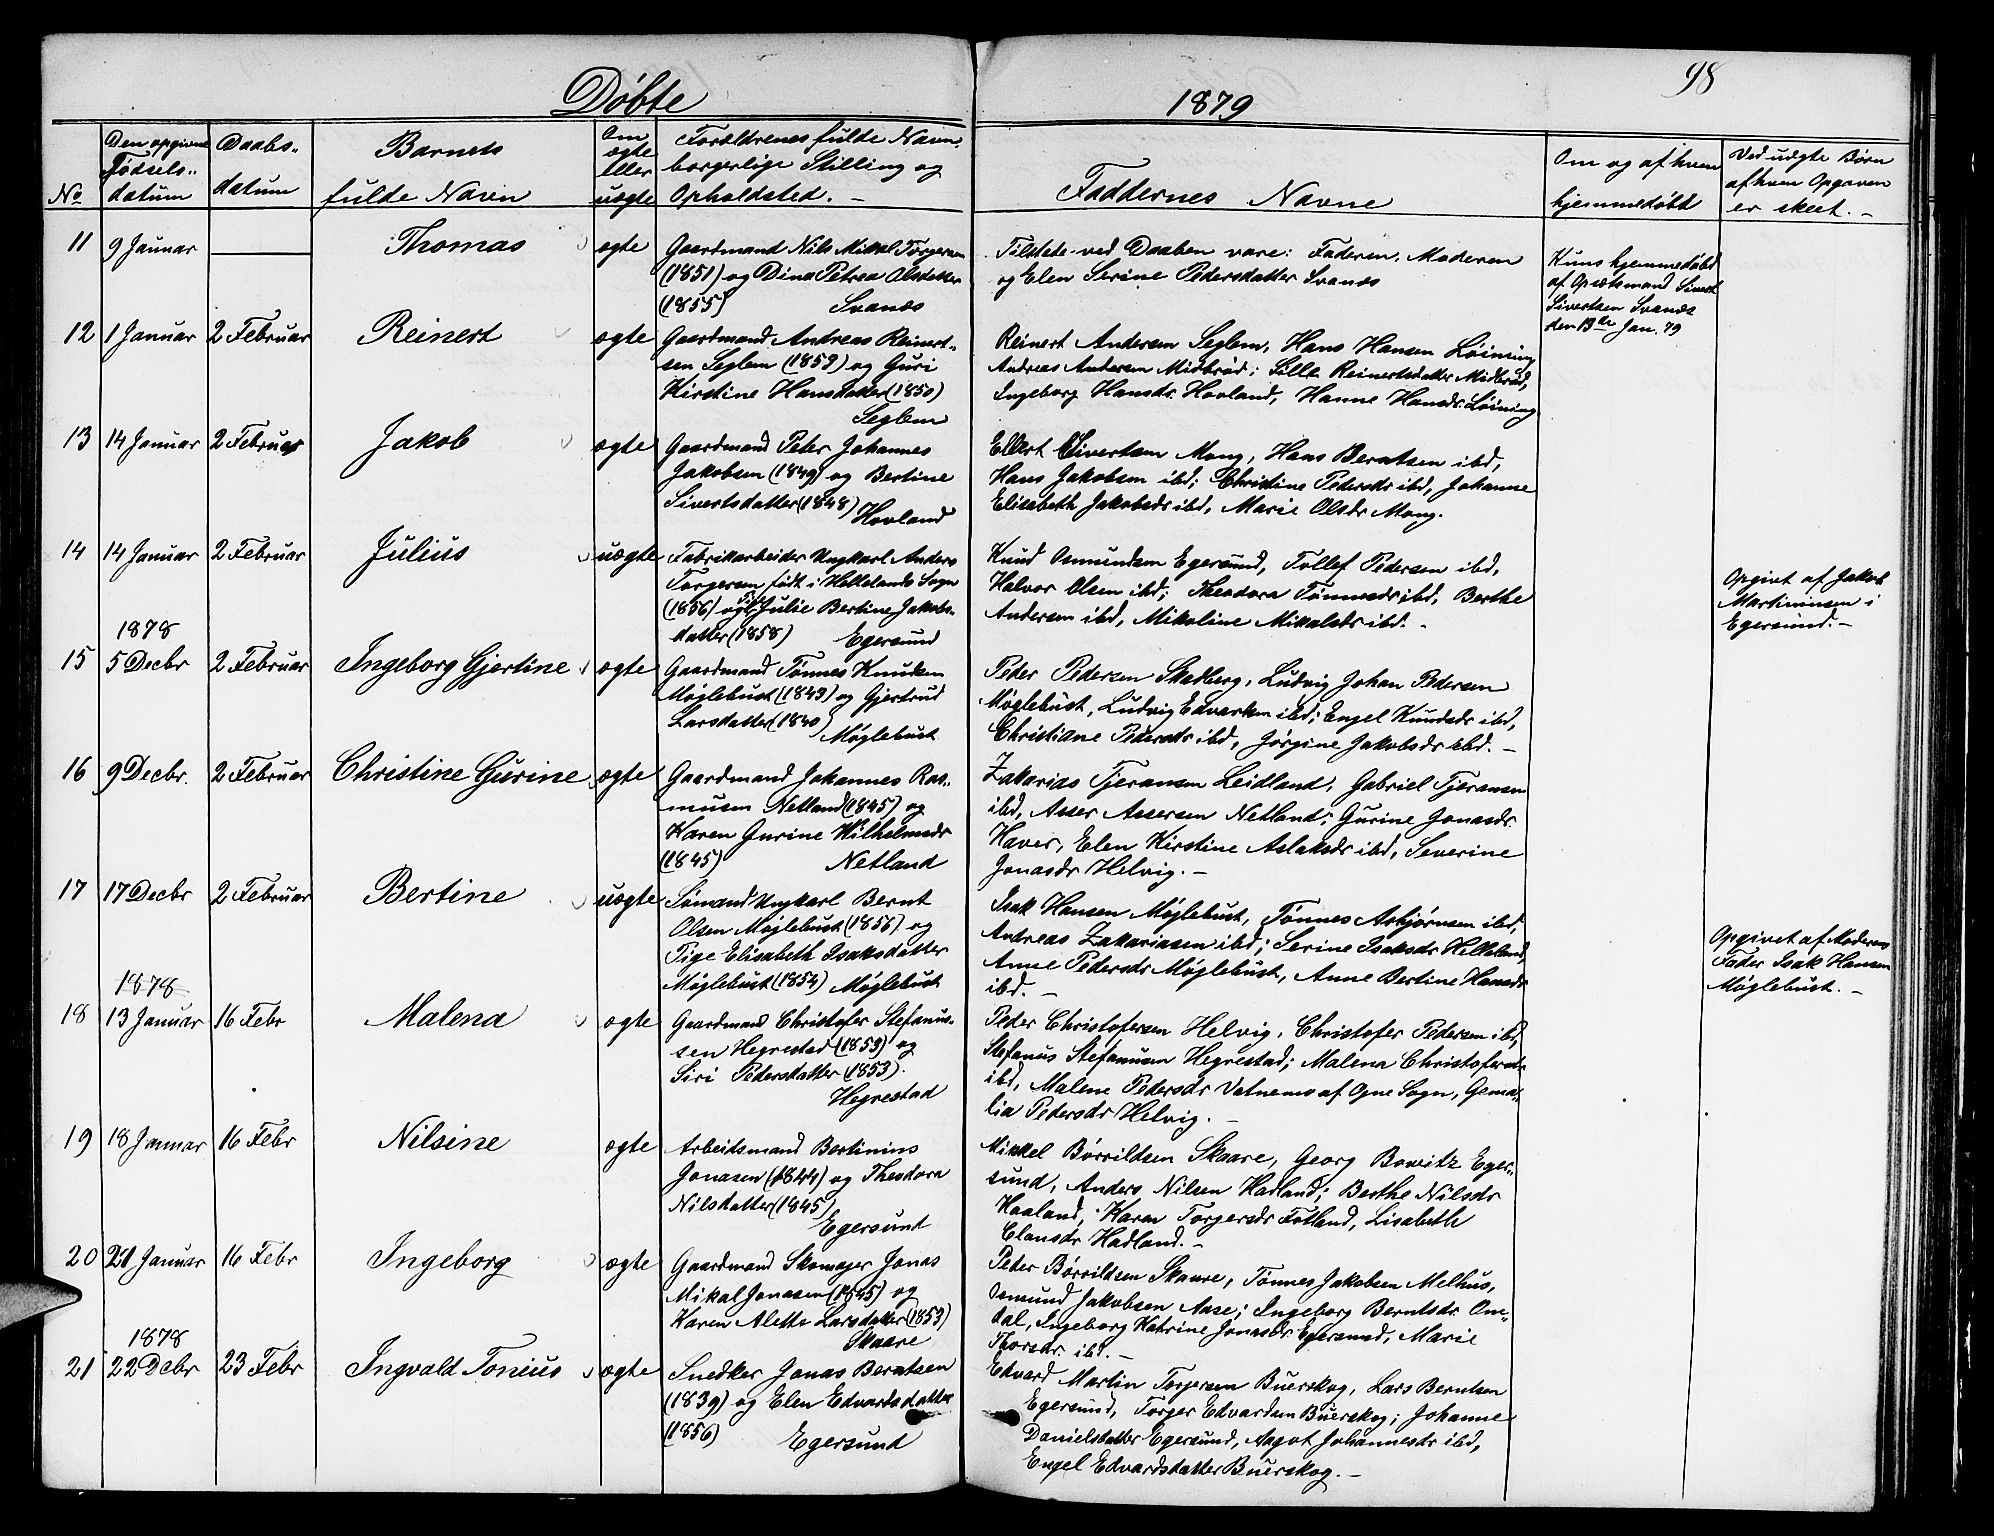 Døbte
1879
98
No
Den opgivne Fødselsdatum
Daabsdatum
Barnets fulde Navn
Om ægte eller uægte
Forældrenes fulde Navn, borgerlige Stilling og Opholdsted. —
Faddernes Navne
Om og af hvem hjemmedøbt
Ved uægte Børn af hvem Opgaven er skeet. —
11 9 Januar Thomas ægte
Gaardmand Nils Mikal Torgersen
(1851) og Dina Petrea Olsdatter
(1855) Svanæs
Tilstede ved Daaben vare: Faderen, Moderen
og Elen Serine Pedersdatter Svanæs
Kuns hjemmedøbt
af Opsætsmand Sivert
Sivertsen Svanæs
den 13de Jan. 79
12 1 Januar 2 Februar Reinert ægte
Gaardmand Andreas Reinert-
sen Seglem (1853) og Guri
Kirstine Hansdatter (1850)
Seglem
Reinert Andersen Seglem, Hans Hansen Løining
Andreas Andersen Midbrød; Sille Reinertsdatter Midbrød,
Ingeborg Hansdr. Hovland, Hanne Hansdr. Løining
13 14 Januar 2 Februar Jakob ægte
Gaardmand Peter Johannes
Jakobsen (1849) og Bertine
Sivertsdatter (1848) Hovland
Ellert Sivertsen Mong, Hans Berntsen ibd,
Hans Jakobsen ibd; Christine Pedersdr ibd, Johanne
Elisabeth Jakobsdr ibd, Marie Olsdr Mong.
14 14 Januar 2 Februar Julius uægte
Fabrikarbeider Ungkarl Anders
Torgersen født i Hellelands Sogn
(1856) og Pige Julie Bertine Jakobs-
datter (1858) Egersund
Knud Osmundsen Egersund, Tollef Pedersen ibd,
Halvor Olsen ibd; Theodora Tønnesdr ibd, Berthe
Andersen ibd, Mikoline Mikalsdr ibd. -
Opgivt af Jakob
Martiniusen i
Egersund. —
1878
15 5 Decbr 2 Februar Ingeborg Gjertine ægte
Gaardmand Tønnes Knudsen
Møglebust (1843) og Gjertrud
Larsdatter (1840)
Møglebust
Peder Pedersen Skadberg, Ludvig Johan Pedersen
Møglebust, Ludvig Edvardsen ibd; Engel Knudsdr ibd,
Christiane Pedersdr ibd, Jørgine Jakobsdr ibd. —
16 9 Decbr. 2 Februar Christine Gurine ægte
Gaardmand Johannes Ras-
musen Netland (1845) og
Karen Gurine Wilhelmsdr
(1845) Netland
Zakarias Tjeransen Leidland, Gabriel Tjeransen
ibd, Asser Assersen Netland; Gurine Jonasdr.
Haver, Elen Kirstine Aslaksdr ibd, Severine
Jonasdr Helvig. —
17 17 Decbr 2 Februar Bertine uægte
Sømand Ungkarl Bernt
Olsen Møglebust (1856) og
Pige Elisabeth Isaksdatter
Møglebust (1854) Møglebust
Isak Hansen Møglebust, Tønnes Asbjørnsen ibd,
Andreas Zakariasen ibd; Serine Isaksdr Helleland,
Anne Pedersdr Møglebust, Anne Bertine Hansdr
ibd. —
Opgivet af Moderens
Fader Isak Hansen
Møglebust. —
1878
18 13 Januar 16 Febr Malena ægte
Gaardmand Christofer Stefanus-
sen Hegrestad (1853) og
Siri Pedersdatter (1853).
Hegrestad
Peder Christofersen Helvig, Christofer Pedersen ibd,
Stefanus Stefanusen Hegrestad; Malena Christofersdr
ibd, Malene Pedersdr Vatnemo af Ogne Sogn, Gema-
lia Pedersdr Helvig. —
19 18 Januar 16 Febr Nilsine ægte
Arbeidsmand Bertinius
Jonasen (1844) og Theodora
Nilsdatter (1845)
Egersund
Mikkel Børrildsen Skaare, Georg Bowitz Eger-
sund, Anders Nilsen Hadland; Berthe Nilsdr
Haaland, Karen Torgersdr Fotland, Lisabeth
Clausdr Hadland. —
20 21 Januar 16 Febr Ingeborg ægte
Gaardmand Skomager Jonas
Mikal Jonasen (1845) og
Karen Alette Larsdatter (1853)
Skaare
Peder Børrildsen Skaare, Tønnes Jakobsen Melhus,
Osmund Jakobsen Aase; Ingeborg Berntsdr Om-
dal, Ingeborg Katrine Jonasdr Egersund, Marie
Thorsdr. ibd. —
1878
21 22 Decbr 23 Febr Ingvald Tonius ægte
Snedker Jonas Berntsen
(1839) og Elen Edvardsdatter
(1856) Egersund
Edvard Martin Torgersen Buerskog, Lars Berntsen
Egersund, Torger Edvardsen Buerskog; Johanne
Danielsdatter Egersund, Aagot Johannesdr ibd,
Engel Edvardsdatter Buerskog. —